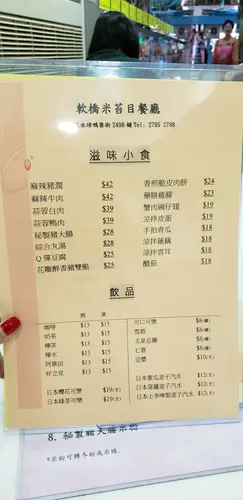 軟橋米苔目餐廳
水埗鴨寮街249B舖 Tel: 2795 2798
滋味小食
麻辣豬潤 $42
麻辣牛肉 $42
蒜蓉白肉 $39
蒜蓉鴨肉 $39
秘製豬大腸 $28
綜合丸湯 $28
Q彈豆腐 $25
花雕醉香豬雙脆 $25
香煎脆皮肉餅 $24
藥膳雞腳 $23
蟹肉碗仔翅 $19
涼拌皮蛋 $19
手拍青瓜 $18
涼拌蓮藕 $18
涼拌雲耳 $18
酷茄 $18
飲品
熱 凍
咖啡 $13 $15
奶茶 $13 $15
檸茶 $13 $15
檸水 $13 $15
阿華田 $13 $15
好立克 $13 $15
日本櫻花可樂 $19(支)
日本綠茶可樂 $19(支)
可口可樂 $8(罐)
雪碧 $8(罐)
玉泉忌廉 $8(罐)
七喜 $8(罐)
豆漿 $10(支)
日本蜜瓜波子汽水 $12(支)
日本菠蘿波子汽水 $12(支)
日本士多啤梨波子汽水 $12(支)
8. 秘製豬大腸米粉
*米粉可轉冬粉或米線。